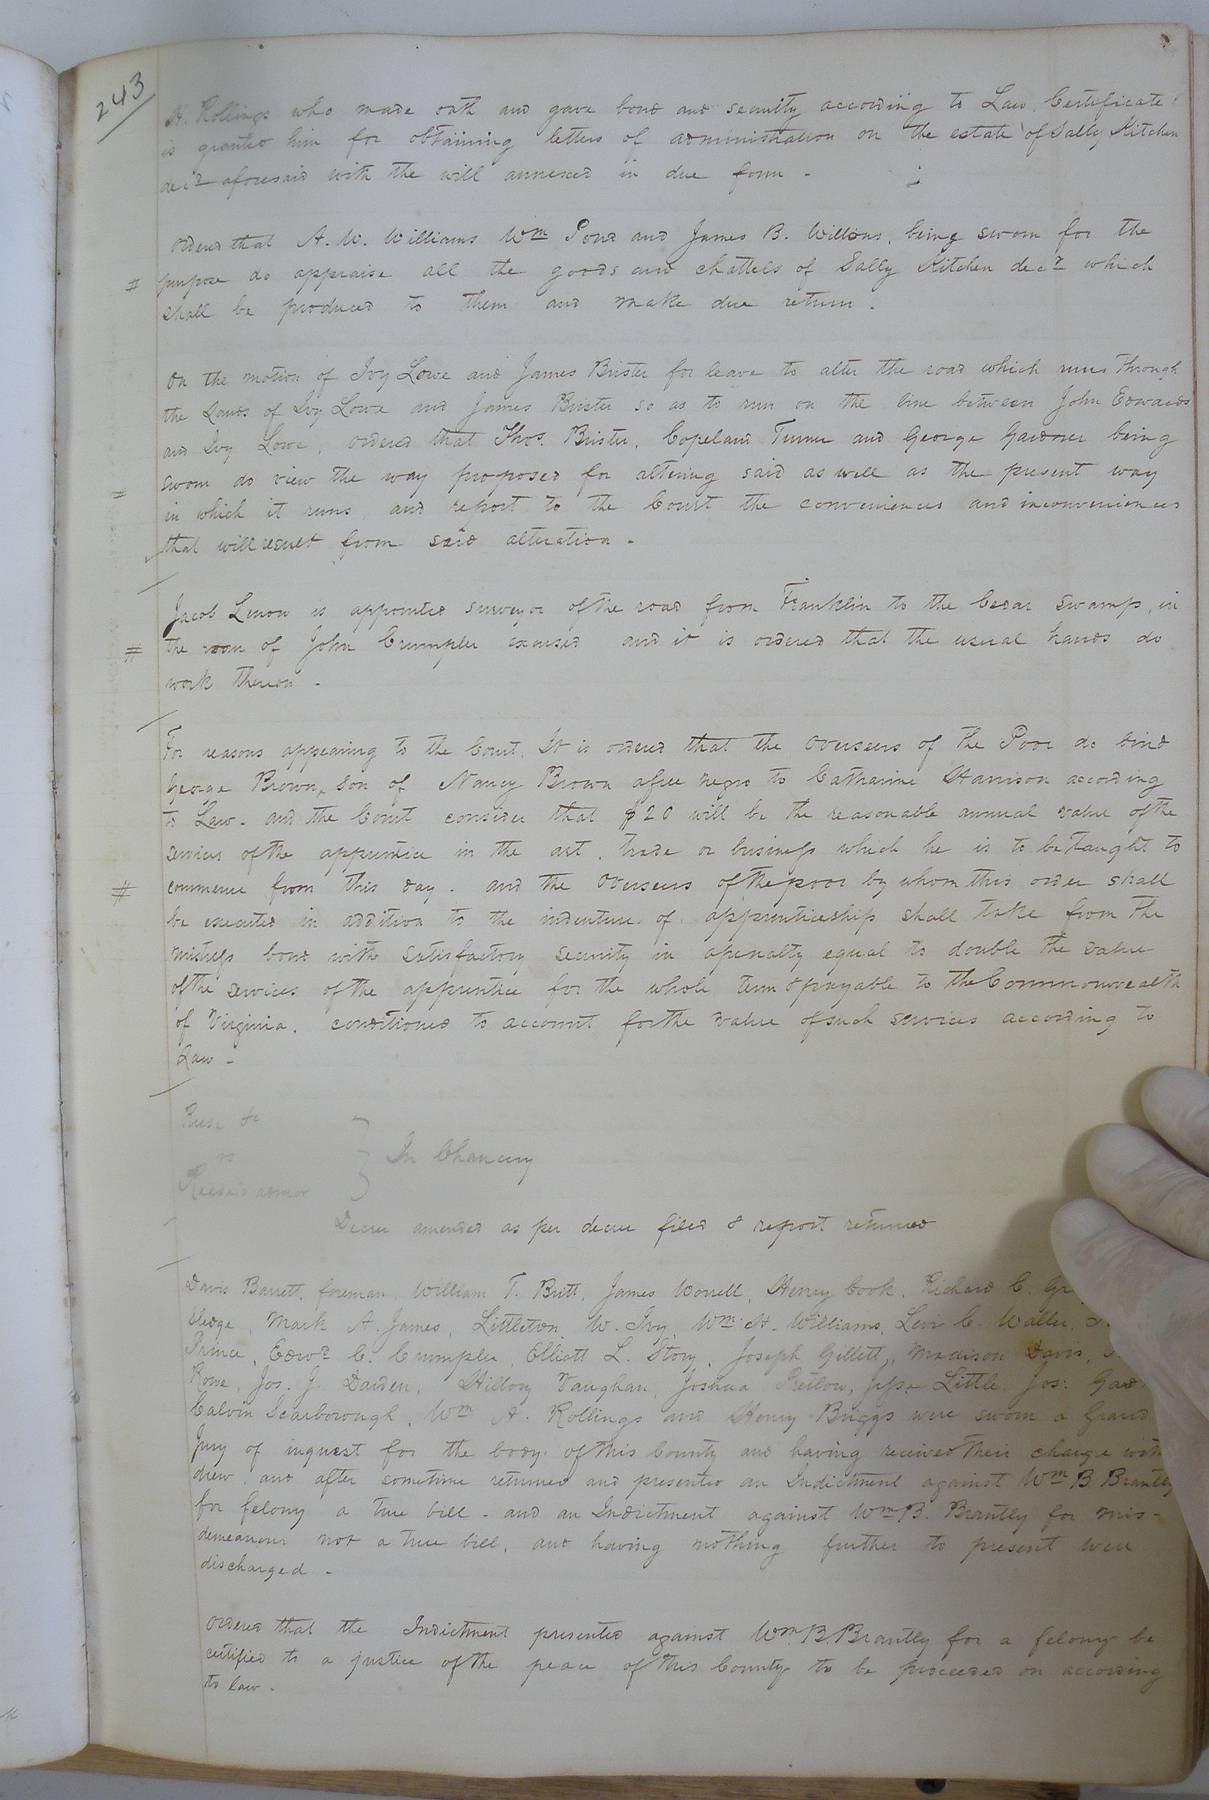 243
H. Rollings who made oath and gave bond and security according to Law Certificate
is granted him for obtaining letters of administration on the estate of Sally Kitchen
decd aforesaid with the will annexed in due form.
Ordered that A. W. Williams Wm Pond and James B. Willons, being sworn for the
# purpose do appraise all the goods and chattels of Sally Kitchen decd which
shall be produced to them and make due return.
On the motion of Ivy Lowe and James Brister for leave to alter the road which runs through
the Lands of Ivy Lowe and James Brister so as to run on the line between John Edwards
and Ivy Lowe, ordered that Thos. Brister, Copeland Turner and George Gardner being
sworn do view the way proposed for altering said as well as the present way
= in which it runs, and report to the Court the conveniences and inconveniences
that will result from said alteration.
Jacob Lenow is appointed surveyor of the road from Franklin to the Cedar swamp, in
# the room of John Crumpler excused and it is ordered that the usual hands do
work thereon.
For reasons appearing to the Court, It is ordered that the Overseers of the Poor do bind
George Brown, son of Nancy Brown a free negro to Catharine Harrison according
to Law. and the Court consider that $20 will be the reasonable annual value of the
services of the apprentice in the art, trade or business which he is to be taught to
# commence from this day. and the Overseers of the poor by whom this order shall
be executed in addition to the indenture of apprenticeship shall take from the
mistress bond with satisfactory security in a penalty equal to double the value
of the services of the apprentice for the whole term & payable to the Commonwealth
of Virginia, conditioned to account for the value of such services according to
Law.
vs
In Chancery
Decree amended as per decree filed & report returned
Davis Barrett, foreman, William T. Britt, James Worrell, Henry Cook, Richard C. Gr
Mark A. James, Littleton W. Ivy, Wm H. Williams, Levi C. Waller,
Prince, Edwd C. Crumpler, Elliott L. Story, Joseph Gillett, Madison Davis,
Rowe, Jos. J. Darden, Hillory Vaughan, Joshua Pretlow, Jesse Little, Jos:
Calvin Scarborough, Wm A. Rollings and Henry Briggs were sworn a Grand
Jury of inquest for the body of this County and having received their charge with
drew, and after sometime returned and presented an Indictment against Wm B Brantly
for felony a true bill. and an Indictment against Wm B. Brantly for mis-
demeanour not a true bill, and having nothing further to present were
discharged.
Ordered that the Indictment presented against Wm B. Brantly for a felony be
certified to a justice of the peace of this County to be proceeded on according
to law.